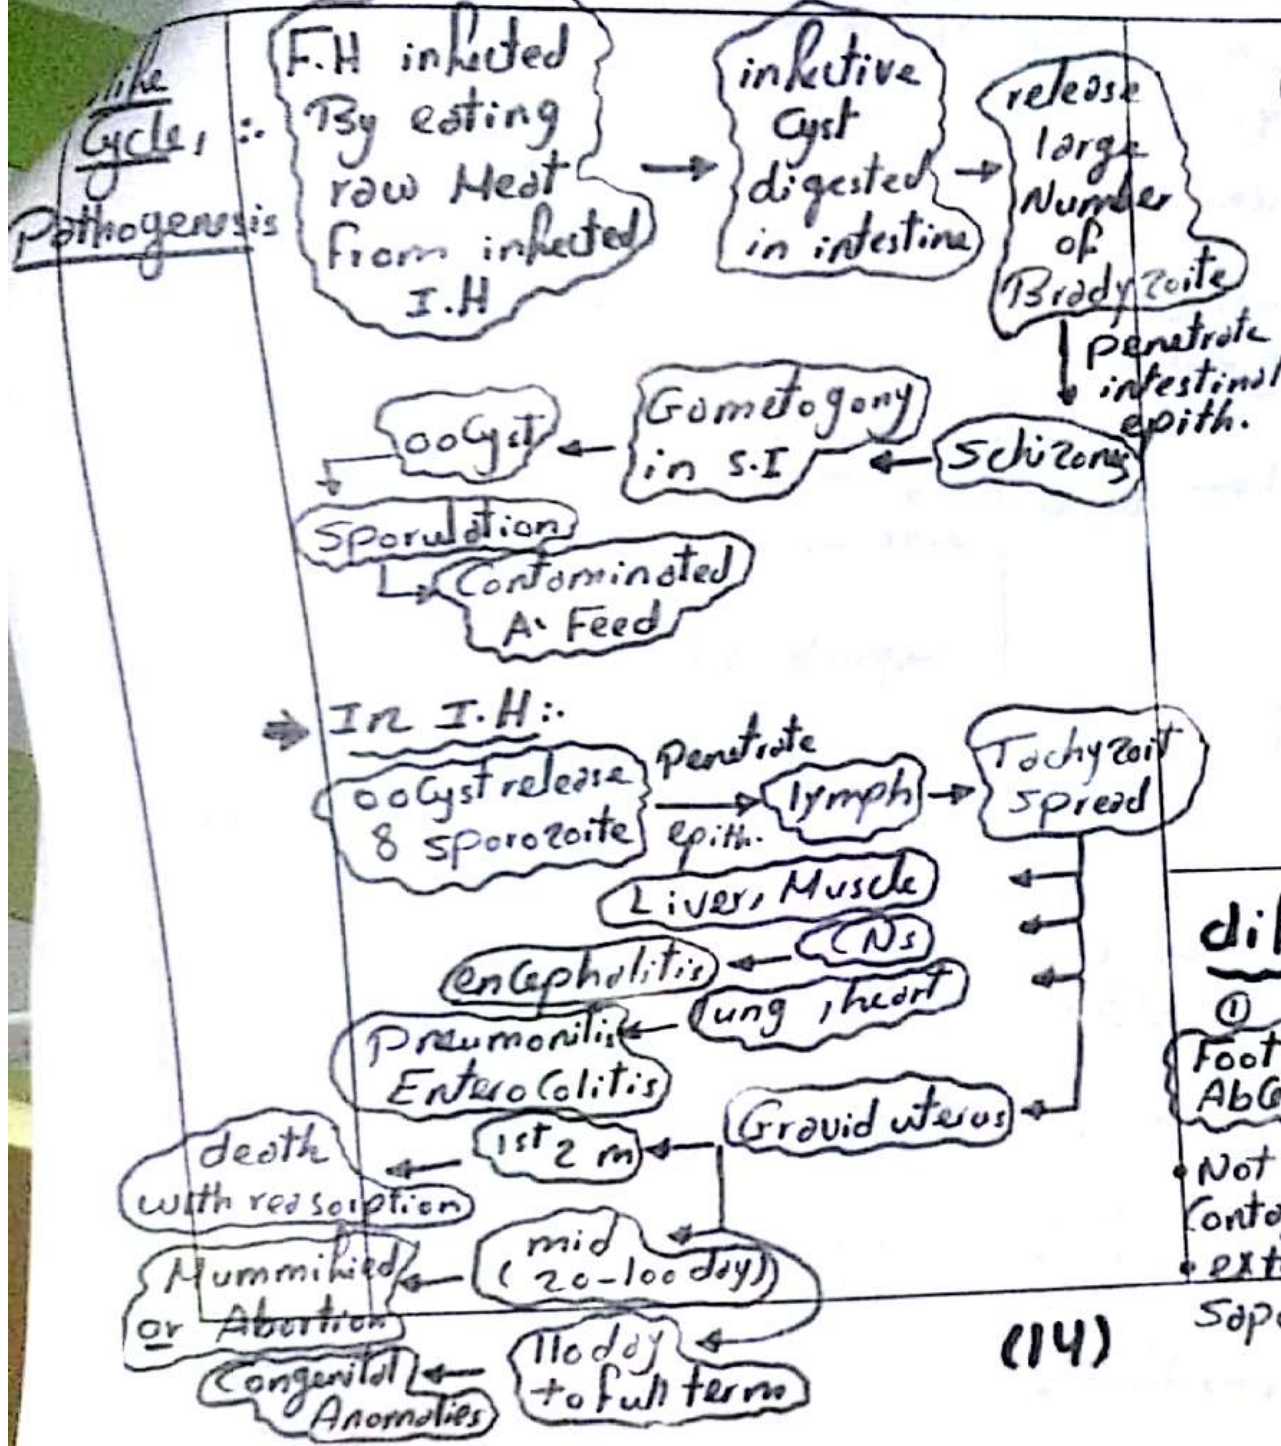 life
Cycle, :.
Pathogenesis
F.H infected
By eating
raw Meat
from infected
I.H
infective
Cyst
digested
in intestine
release
large
Number
of
Bradyzoite
penetrate
intestinal
epith.
Schizony
Gametogony
in S.I
ooCyst
Sporulation
Contaminated
A. Feed
In I.H :.
ooCyst release
8 sporozoite
Penetrate
epith.
lymph
Tachyzoit
spread
Liver, Muscle
CNs
encephalitis
lung, heart
Pneumonitis
EnteroColitis
Gravid uterus
1st 2 m
death
with reasorption
mid
(20-100 day)
Mummified
or Abortion
110 day
to full term
Congenital
Anomalies
(14)
①
Foot
Not